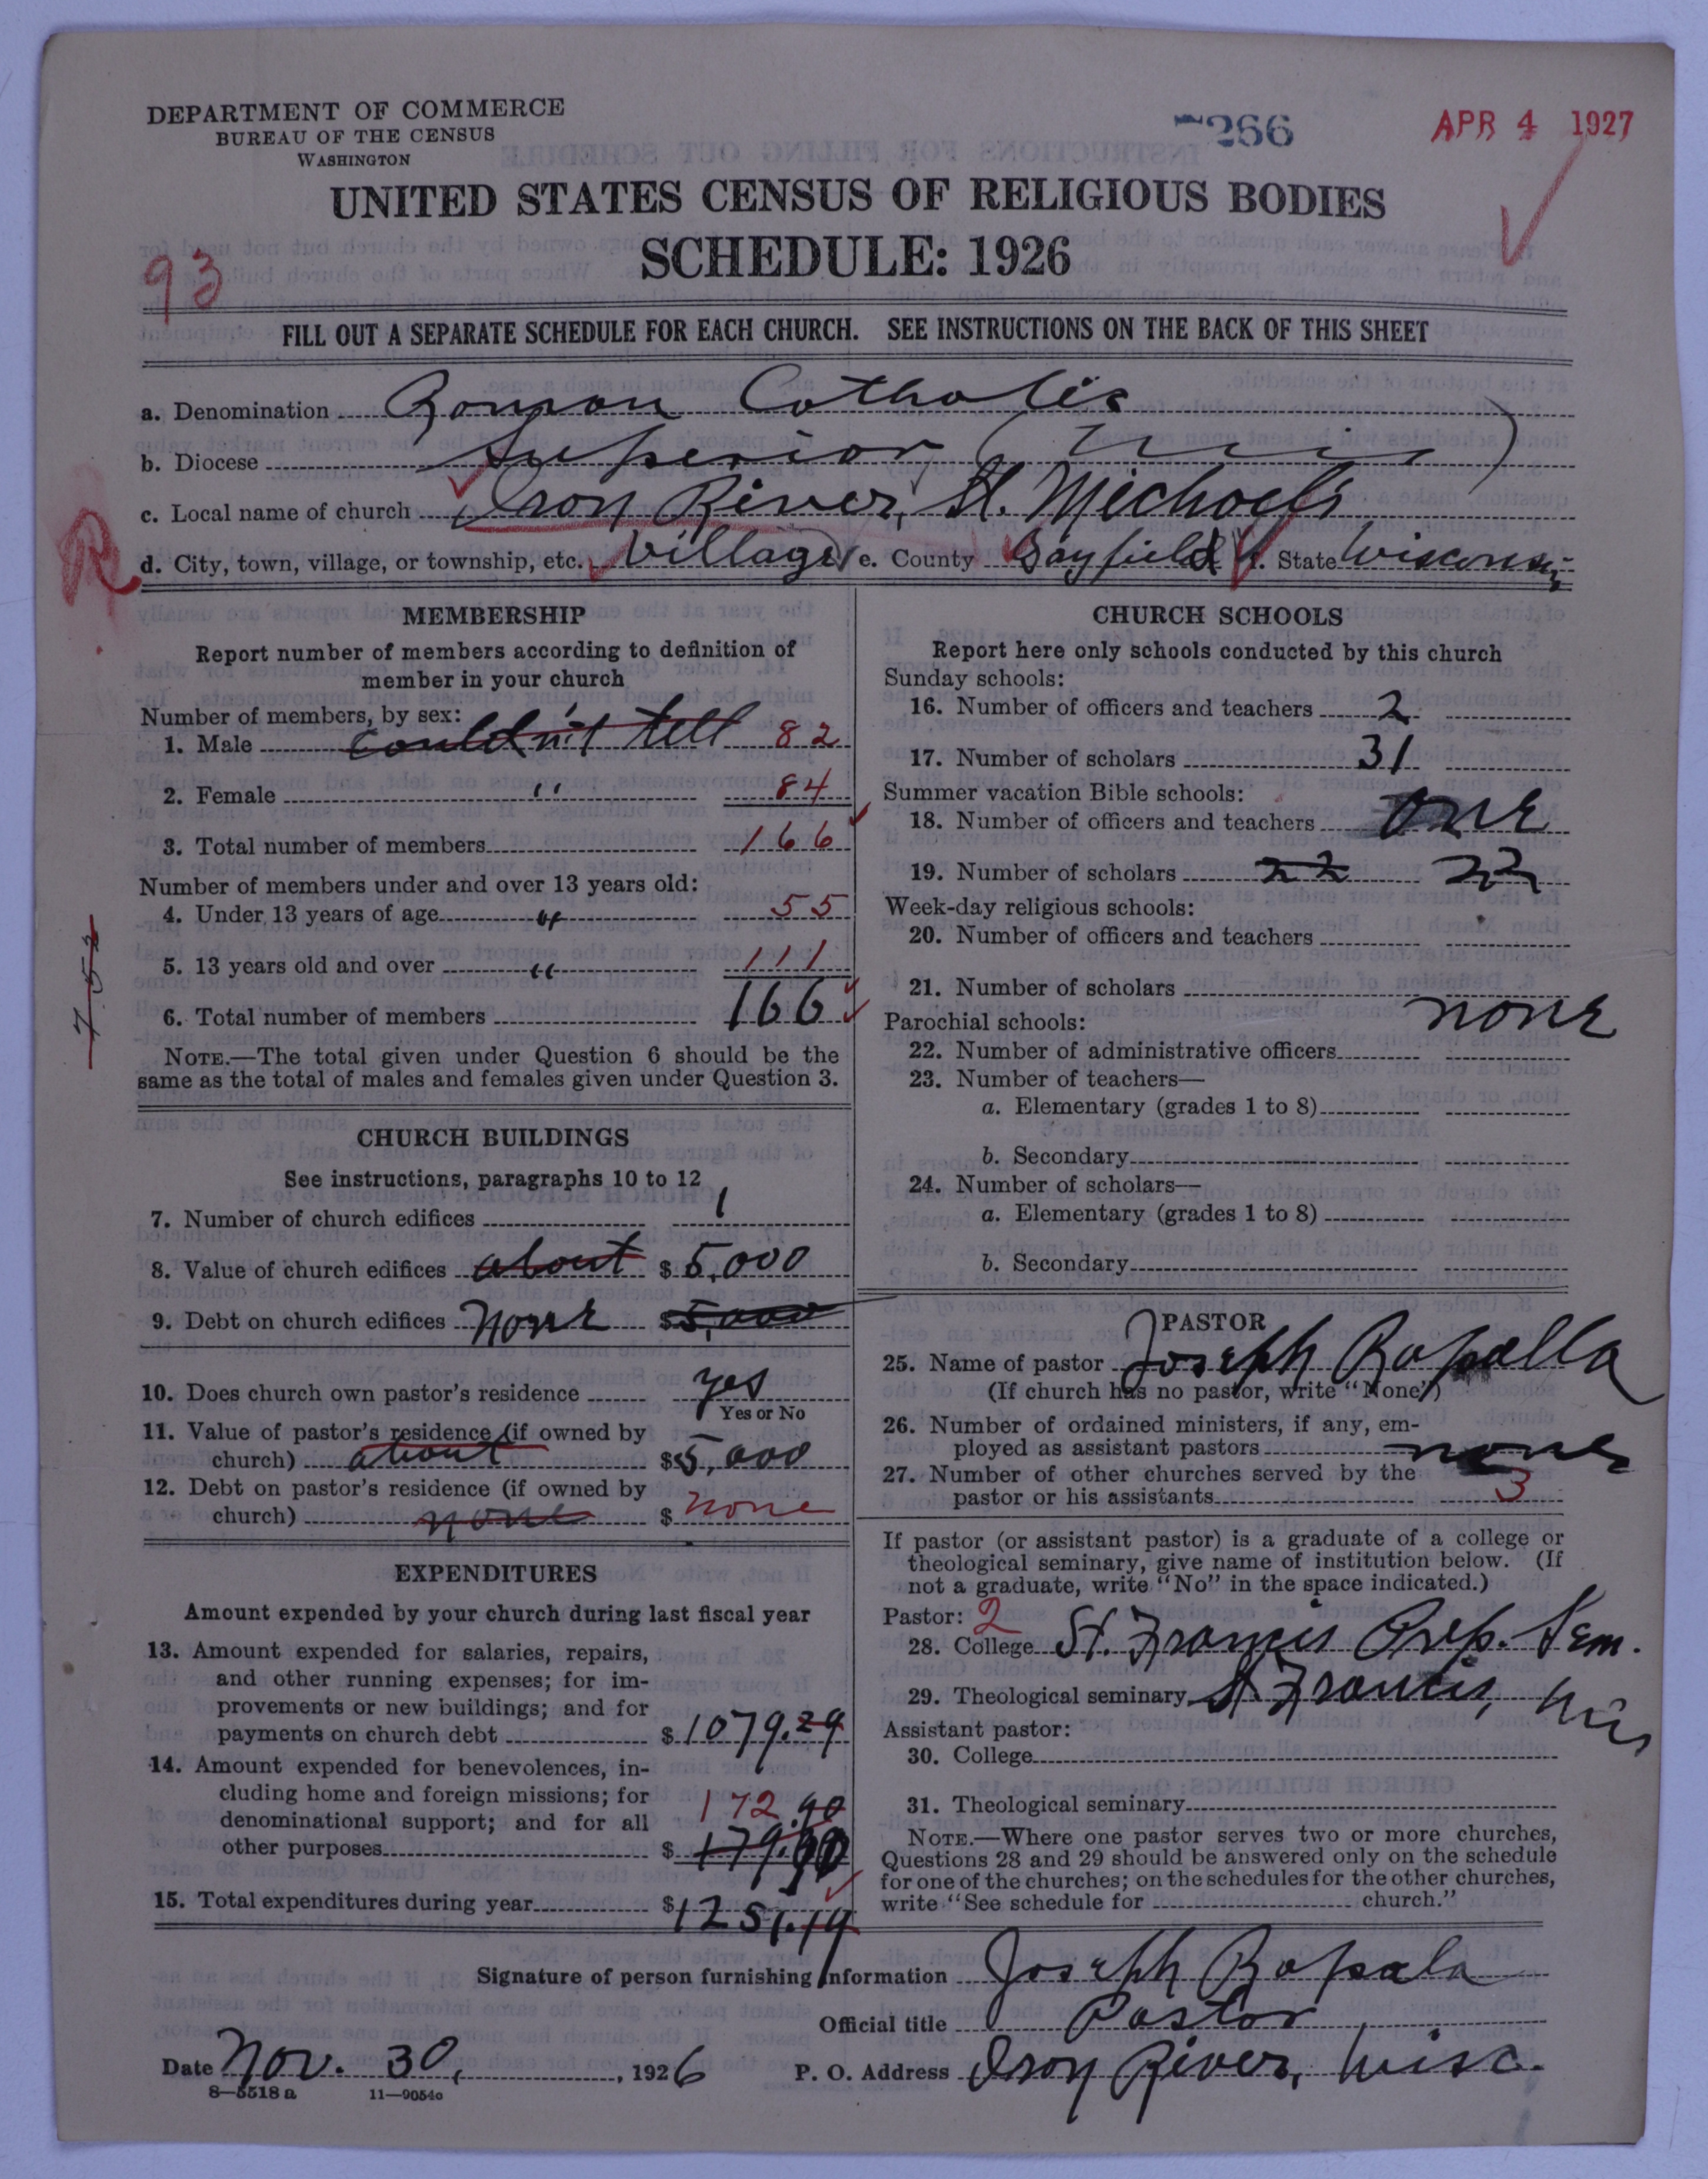 DEPARTMENT OF COMMERCE
BUREAU OF THE CENSUS
WASHINGTON
266
APR 4 1927
UNITED STATES CENSUS OF RELIGIOUS BODIES
SCHEDULE: 1926
93
FILL OUT A SEPARATE SCHEDULE FOR EACH CHURCH. SEE INSTRUCTIONS ON THE BACK OF THIS SHEET
a. Denomination Roman Catholic
b. Diocese Superior (Wis)
c. Local name of church Iron River, St. Michael's
R
d. City, town, village, or township, etc. Village e. County Bayfield f. State Wisconsin
MEMBERSHIP
Report number of members according to definition of
member in your church
Number of members, by sex:
1. Male couldn't tell 82
2. Female " 84
3. Total number of members 166
Number of members under and over 13 years old:
4. Under 13 years of age " 55
5. 13 years old and over " 111
6. Total number of members 166
NOTE.—The total given under Question 6 should be the
same as the total of males and females given under Question 3.
CHURCH BUILDINGS
See instructions, paragraphs 10 to 12
7. Number of church edifices 1
8. Value of church edifices about $ 5,000
9. Debt on church edifices none $ 5,000
10. Does church own pastor's residence yes
Yes or No
11. Value of pastor's residence (if owned by
church) about $ 5,000
12. Debt on pastor's residence (if owned by
church) none $ none
EXPENDITURES
Amount expended by your church during last fiscal year
13. Amount expended for salaries, repairs,
and other running expenses; for im-
provements or new buildings; and for
payments on church debt $ 1079.29
14. Amount expended for benevolences, in-
cluding home and foreign missions; for
denominational support; and for all 172.90
other purposes $ 179.90
15. Total expenditures during year $ 1251.19
CHURCH SCHOOLS
Report here only schools conducted by this church
Sunday schools:
16. Number of officers and teachers 2
17. Number of scholars 31
Summer vacation Bible schools:
18. Number of officers and teachers one
19. Number of scholars 22 22
Week-day religious schools:
20. Number of officers and teachers
21. Number of scholars
Parochial schools: none
22. Number of administrative officers
23. Number of teachers—
a. Elementary (grades 1 to 8)
b. Secondary
24. Number of scholars—
a. Elementary (grades 1 to 8)
b. Secondary
PASTOR
25. Name of pastor Joseph Rapalla
(If church has no pastor, write "None")
26. Number of ordained ministers, if any, em-
ployed as assistant pastors none
27. Number of other churches served by the
pastor or his assistants 3
If pastor (or assistant pastor) is a graduate of a college or
theological seminary, give name of institution below. (If
not a graduate, write "No" in the space indicated.)
Pastor: 2
28. College St. Francis Prep. Sem.
29. Theological seminary St. Francis, Wis
Assistant pastor:
30. College
31. Theological seminary
NOTE.—Where one pastor serves two or more churches,
Questions 28 and 29 should be answered only on the schedule
for one of the churches; on the schedules for the other churches,
write "See schedule for church."
Signature of person furnishing information Joseph Rapala
Official title Pastor
Date Nov. 30, 1926 P. O. Address Iron River, Wisc.
8—5518 a 11—9054o